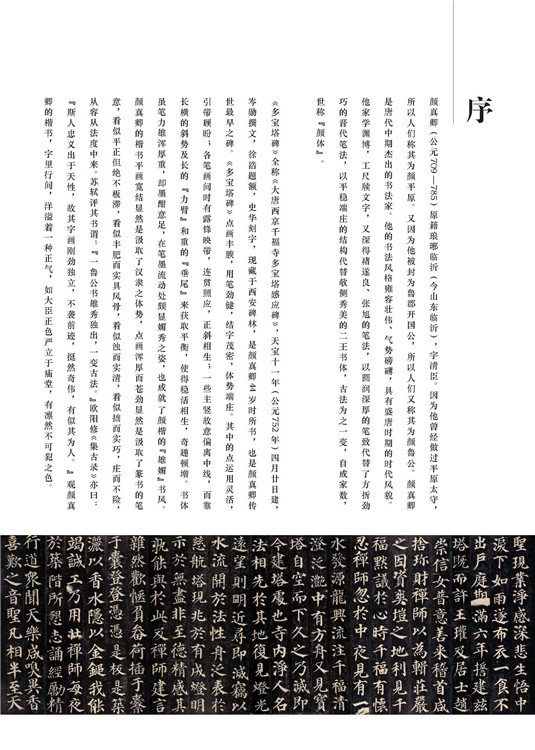 序
颜真卿（公元709—785）原籍琅琊临沂（今山东临沂），字清臣。因为他曾经做过平原太守，
所以人们称其为颜平原。又因为他被封为鲁郡开国公，所以人们又称其为颜鲁公。颜真卿
是唐代中期杰出的书法家。他的书法风格雍容壮伟、气势磅礴，具有盛唐时期的时代风貌。
他家学渊博，工尺牍文字，又深得褚遂良、张旭的笔法，以圆润深厚的笔致代替了方折劲
巧的晋代笔法，以平稳端庄的结构代替欹侧秀美的二王书体，古法为之一变，自成家数，
世称『颜体』。
《多宝塔碑》全称《大唐西京千福寺多宝塔感应碑》，天宝十一年（公元752年）四月廿日建，
岑勋撰文，徐浩题额，史华刻字，现藏于西安碑林，是颜真卿44岁时所书，也是颜真卿传
世最早之碑。《多宝塔碑》点画丰腴，用笔劲健，结字茂密，体势端庄。其中的点运用灵活，
引带顾盼；各笔画间时有露锋映带，连贯照应，正斜相生；一些主竖故意偏离中线，而靠
长横的斜势及长的『力臂』和重的『垂尾』来获取平衡，使得稳活相生，奇趣顿增。书体
虽笔力雄浑厚重，却墨酣意足，在笔墨流动处颇显媚秀之姿，也成就了颜楷的『雄媚』书风。
颜真卿的楷书平画宽结显然是汲取了汉隶之体势，点画浑厚而苍劲显然是汲取了篆书的笔
意，看似平正但绝不板滞，看似丰肥而实具风骨，看似浊而实清，看似拙而实巧，庄而不险，
从容从法度中来。苏轼评其书谓：『一鲁公书雄秀独出，一变古法。』欧阳修《集古录》亦曰：
『斯人忠义出于天性，故其字画刚劲独立，不袭前迹，挺然奇伟，有似其为人。』观颜真
卿的楷书，字里行间，洋溢着一种正气，如大臣正色严立于庙堂，有凛然不可犯之色。
聖現業淨感深悲生悟中
淚下如雨遂布衣一食不
出戶庭期滿六年誓建茲
塔既而許王瓘及居士趙
崇信女普意善来稽首咸
捨珎財禪師以為輯莊嚴
之因資爽塏之地利見千
福黙議於心時千福有懷
忍禪師忽於中夜見有一
水發源龍興流注千福清
澄泛灧中有方舟又見寶
塔自空而下久之乃滅即
今建塔處也寺內淨人名
法相先於其地復見燈光
遠望則明近尋即滅竊以
水流開於法性舟泛表於
慈航塔現兆於有成燈明
示於無盡非至德精感其
孰能與於此及禪師建言
雜然歡愜負畚荷插于橐
于囊登登憑憑是板是築
灑以香水隱以金鎚我能
竭誠工乃用壯禪師每夜
於築階所懇志誦經勵精
行道衆聞天樂咸嗅異香
喜歎之音聖凡相半至天